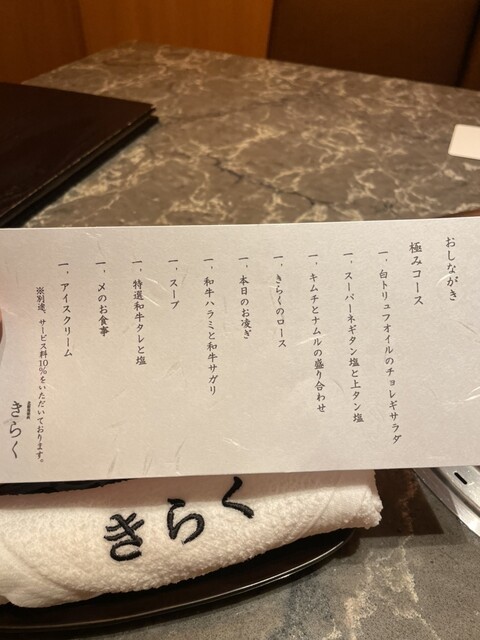 おしながき
極みコース
一、白トリュフオイルのチョレギサラダ
一、スーパーネギタン塩と上タン塩
一、キムチとナムルの盛り合わせ
一、きらくのロース
一、本日のお凌ぎ
一、和牛ハラミと和牛サガリ
一、スープ
一、特選和牛タレと塩
一、〆のお食事
一、アイスクリーム
※別途、サービス料10%をいただいております。
きらく
きらく